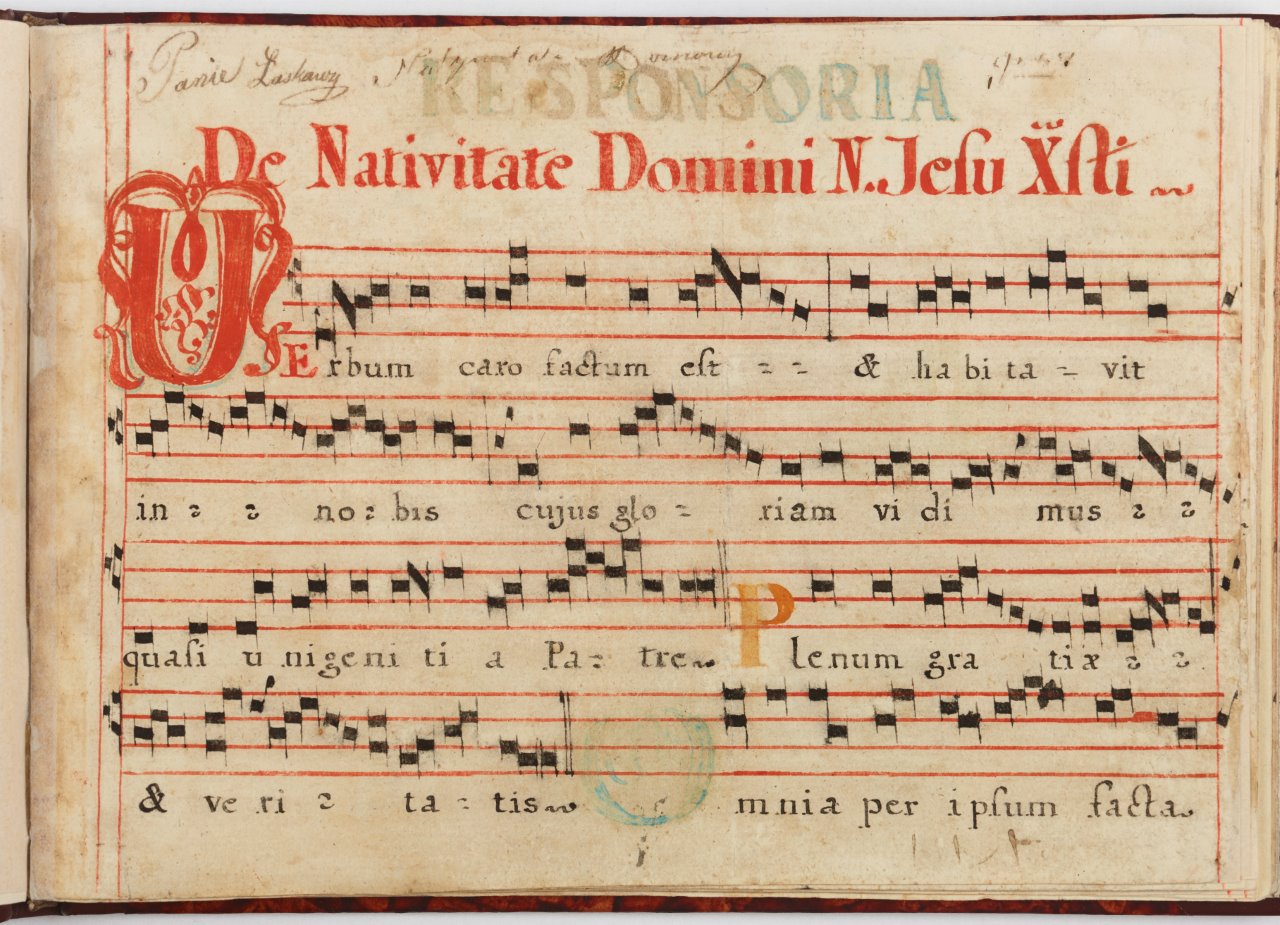 Panie Łaskawy
RESPONSORIA
De Nativitate Domini N. Jesu Xsti
VErbum caro factum est & habitavit
in nobis cujus gloriam vidimus
quasi unigeniti a Patre Plenum gratiæ
& veritatis mnia per ipsum facta